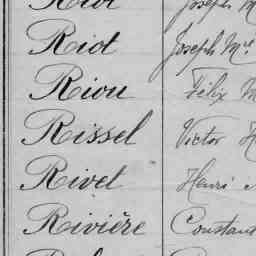 Riot Joseph M
Riot Joseph Mce
Riou Félix M
Rissel Victor H
Rivet Henri
Rivière Constant